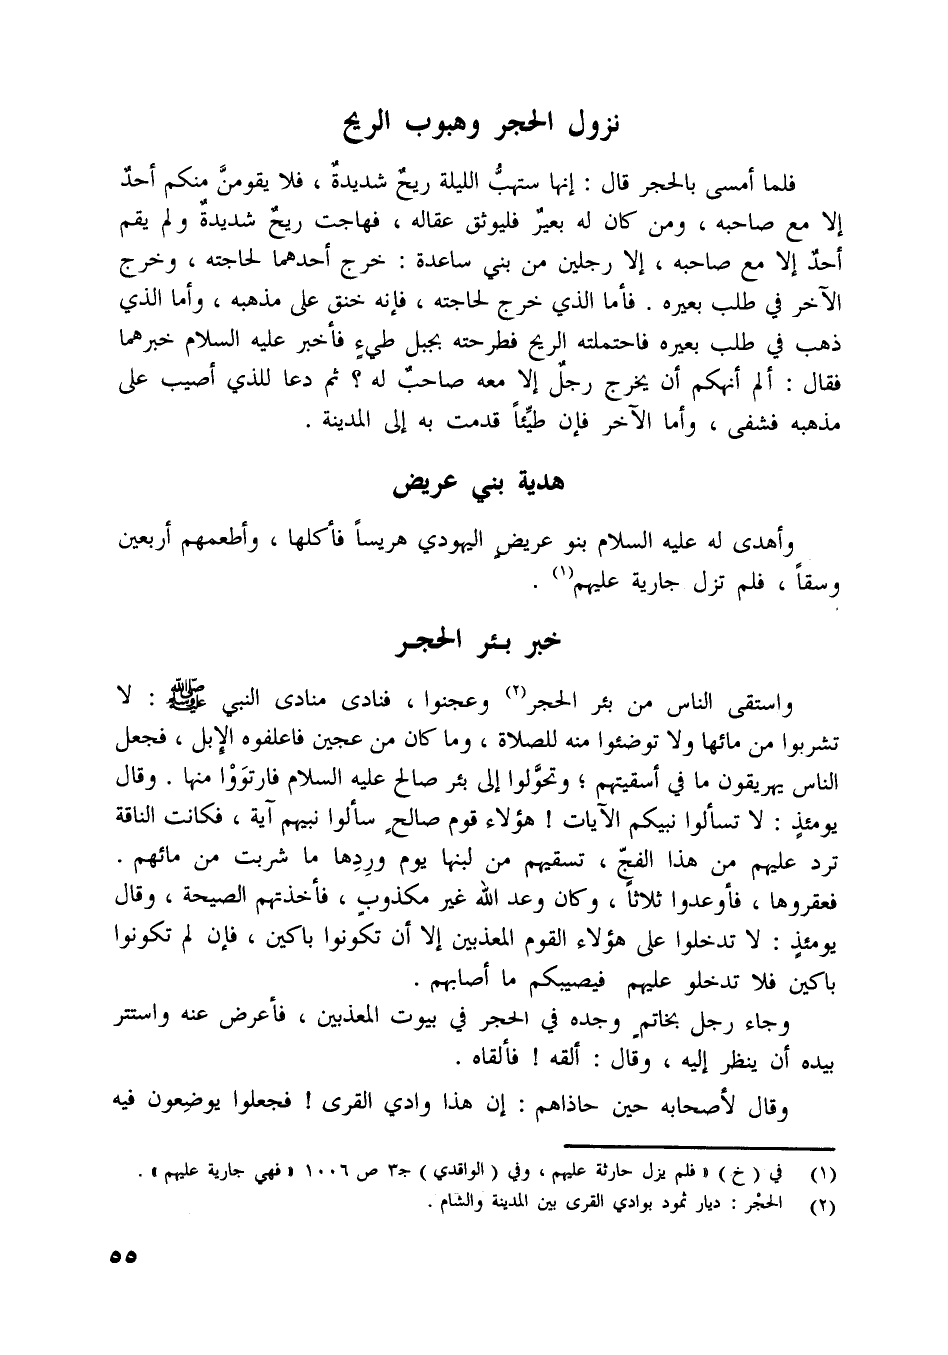 نزول الحجر وهبوب الريح
فلما أمسى بالحجر قال : إنها ستهبُّ الليلة ريحٌ شديدةٌ ، فلا يقومنَّ منكم أحدٌ
إلا مع صاحبه ، ومن كان له بعيرٌ فليوثق عقاله ، فهاجت ريحٌ شديدةٌ ولم يقم
أحدٌ إلا مع صاحبه ، إلا رجلين من بني ساعدة : خرج أحدهما لحاجته ، وخرج
الآخر في طلب بعيره . فأما الذي خرج لحاجته ، فإنه خنق على مذهبه ، وأما الذي
ذهب في طلب بعيره فاحتملته الريح فطرحته بجبل طيءٍ فأخبر عليه السلام خبرهما
فقال : ألم أنهكم أن يخرج رجلٌ إلا معه صاحبٌ له ؟ ثم دعا للذي أصيب على
مذهبه فشفى ، وأما الآخر فإن طيِّئاً قدمت به إلى المدينة .
هدية بني عريض
وأهدى له عليه السلام بنو عريضٍ اليهودي هريساً فأكلها ، وأطعمهم أربعين
وسقاً ، فلم تزل جارية عليهم(١) .
خبر بئر الحجر
واستقى الناس من بئر الحجر(٢) وعجنوا ، فنادى منادى النبي ﷺ : لا
تشربوا من مائها ولا توضئوا منه للصلاة ، وما كان من عجين فاعلفوه الإبل ، فجعل
الناس يهريقون ما في أسقيتهم ؛ وتحوَّلوا إلى بئر صالح عليه السلام فارتوَوْا منها . وقال
يومئذٍ : لا تسألوا نبيكم الآيات ! هؤلاء قوم صالحٍ سألوا نبيهم آية ، فكانت الناقة
ترد عليهم من هذا الفجّ ، تسقيهم من لبنها يوم ورِدِها ما شربت من مائهم .
فعقروها ، فأوعدوا ثلاثاً ، وكان وعد الله غير مكذوبٍ ، فأخذتهم الصيحة ، وقال
يومئذٍ : لا تدخلوا على هؤلاء القوم المعذبين إلا أن تكونوا باكين ، فإن لم تكونوا
باكين فلا تدخلو عليهم فيصيبكم ما أصابهم .
وجاء رجل بخاتمٍ وجده في الحجر في بيوت المعذبين ، فأعرض عنه واستتر
بيده أن ينظر إليه ، وقال : ألقه ! فألقاه .
وقال لأصحابه حين حاذاهم : إن هذا وادي القرى ! فجعلوا يوضِعون فيه
(١) في ( خ ) « فلم يزل حارثة عليهم ، وفي ( الواقدي ) جـ٣ ص ١٠٠٦ « فهي جارية عليهم » .
(٢) الحجْر : ديار ثمود بوادي القرى بين المدينة والشام .
٥٥